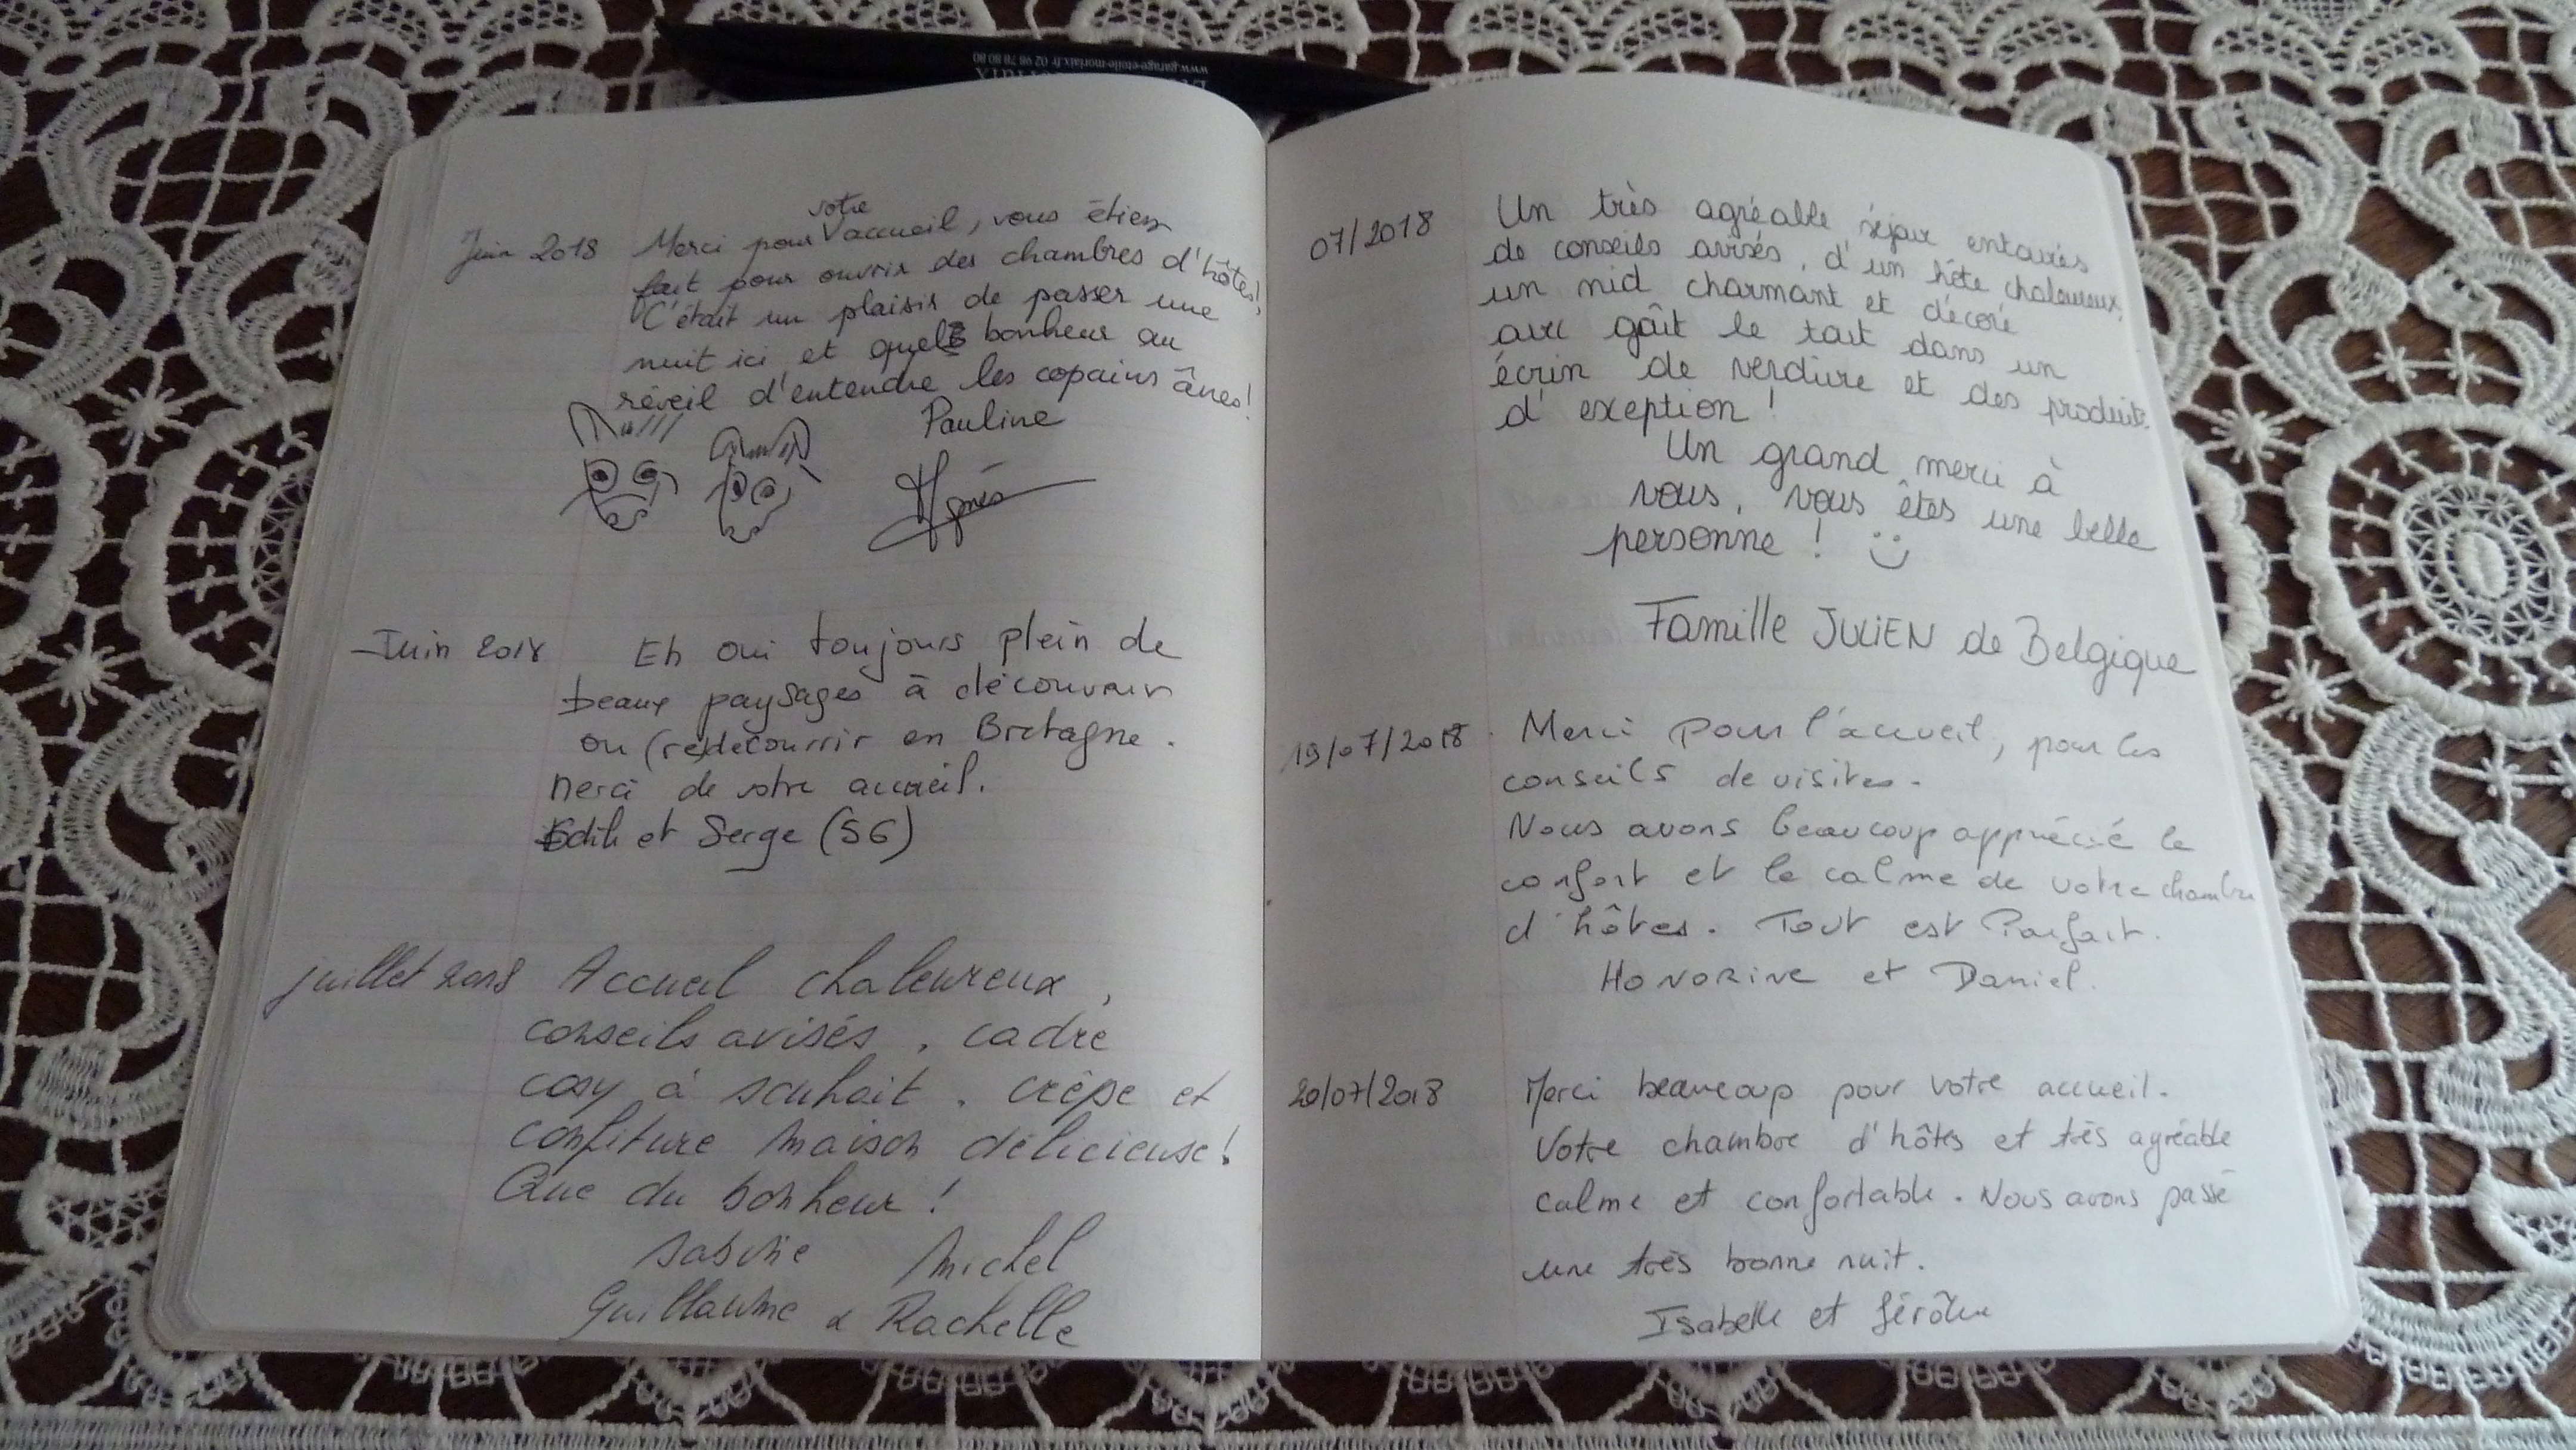 www.garage-etoile-morlaix.fr 02 98 78 80 80
Juin 2018 Merci pour votre accueil, vous étiez
fait pour ouvrir des chambres d'hôtes!
C'était un plaisir de passer une
nuit ici et quel bonheur au
réveil d'entendre les copains ânes!
Pauline
Agnès
Juin 2018 Eh oui toujours plein de
beaux paysages à découvrir
ou (re)découvrir en Bretagne.
Merci de votre accueil.
Edith et Serge (56)
juillet 2018 Accueil chaleureux,
conseils avisés, cadre
cosy à souhait, crêpe et
confiture maison délicieuse!
Que du bonheur!
Sabine Michel
Guillaume & Rachelle
07/2018 Un très agréable séjour entourés
de conseils avisés, d'un hôte chaleureux,
un nid charmant et décoré
avec goût le tout dans un
écrin de verdure et des produits
d'exeption!
Un grand merci à
vous, vous êtes une belle
personne! :)
Famille JULIEN de Belgique
19/07/2018 Merci pour l'accueil, pour les
conseils de visites.
Nous avons beaucoup apprécié le
confort et le calme de votre chambre
d'hôtes. Tout est Parfait.
HONORINE et Daniel.
20/07/2018 Merci beaucoup pour votre accueil.
Votre chambre d'hôtes et très agréable
calme et confortable. Nous avons passé
une très bonne nuit.
Isabelle et Jérôme